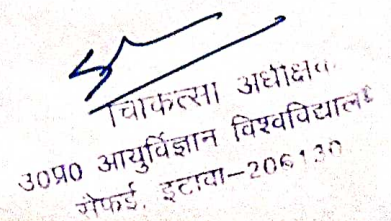 चिकित्सा अधीक्षक
उ०प्र० आयुर्विज्ञान विश्वविद्यालय
सैफई, इटावा-206130